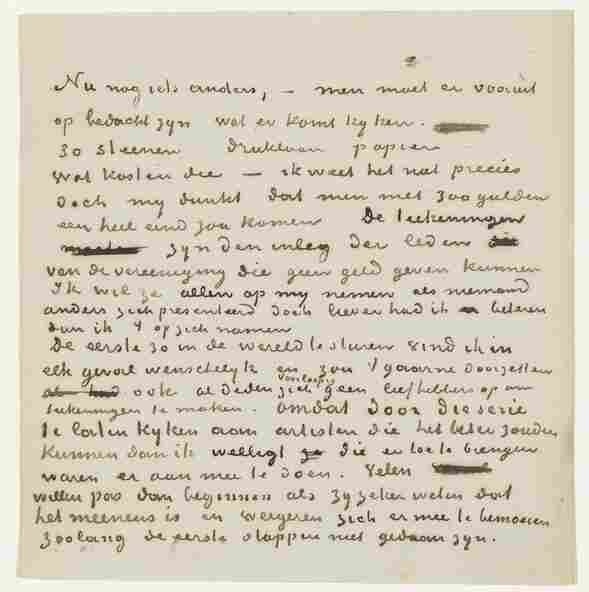 Nu nog iets anders, – men moet er vooruit
op bedacht zyn wat er komt kyken.
30 steenen drukloon papier
wat kosten die – ik weet het niet precies
doch my dunkt dat men met 300 gulden
een heel eind zou komen De teekeningen
zyn den inleg der leden
van de vereeniging die geen geld geven kunnen
Ik wil ze allen op my nemen als niemand
anders zich presenteerd doch liever had ik beteren
dan ik 't op zich namen
De eerste 30 in de wereld te sturen vind ik in
elk geval wenschelyk en zou 't gaarne doorzetten
ook al deden zich voorloopig geen liefhebbers op om
teekeningen te maken. Omdat door die serie
te laten kyken aan artisten die het beter zouden
kunnen dan ik wellicht die er toe te brengen
waren er aan mee te doen. Velen
willen pas dan beginnen als zy zeker weten dat
het meenens is en weigeren zich er mee te bemoeien
zoolang de eerste stappen niet gedaan zyn.